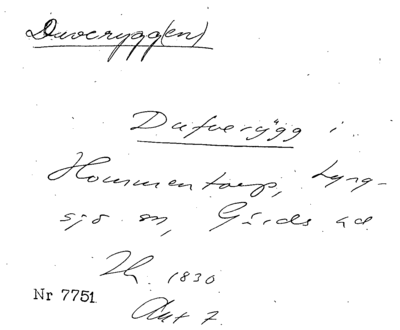 Duverygg(en)
Dufverygg i
Hommentorp, Lyng-
sjö sn, Gärds hd
1830
Nr 7751
Akt 7